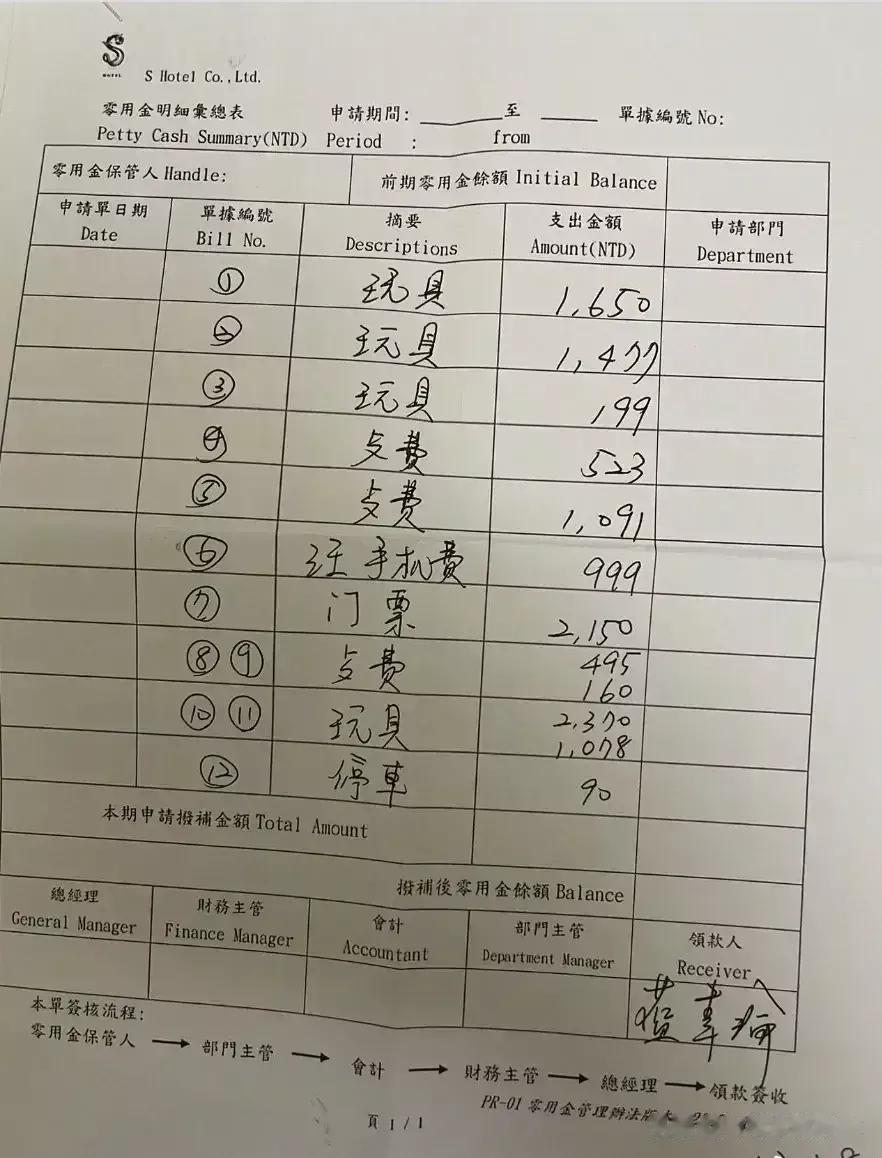 S
HOTEL
S Hotel Co.,Ltd.
零用金明細彙總表 申請期間: ______至 ______ 單據編號 No:
Petty Cash Summary(NTD) Period : from
零用金保管人 Handle: 前期零用金餘額 Initial Balance
申請單日期 單據編號 摘要 支出金額 申請部門
Date Bill No. Descriptions Amount(NTD) Department
① 玩具 1,650
② 玩具 1,477
③ 玩具 199
④ 歺費 523
⑤ 歺費 1,091
⑥ 汪手机费 999
⑦ 门票 2,150
⑧ ⑨ 歺費 495
160
⑩ ⑪ 玩具 2,370
1,078
⑫ 停車 90
本期申請撥補金額 Total Amount
撥補後零用金餘額 Balance
總經理 財務主管 會計 部門主管 領款人
General Manager Finance Manager Accountant Department Manager Receiver
本單簽核流程:
零用金保管人 → 部門主管 → 會計 → 財務主管 → 總經理 → 領款簽收
PR-01 零用金管理辦法版本
頁 1 / 1